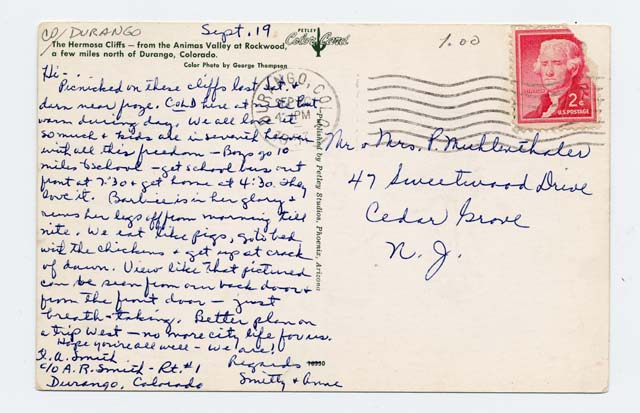 CO/DURANGO
Sept. 19
1.00
PETLEY
Color Card
The Hermosa Cliffs — from the Animas Valley at Rockwood,
a few miles north of Durango, Colorado.
Color Photo by George Thompson
Hi -
Picnicked on these cliffs last Sat. &
darn near froze. Cold here at nite but
warm during day. We all love it
so much & kids are in seventh heaven
with all this freedom - Boys go 10
miles to school - get school bus out
front at 7:30 & get home at 4:30. They
love it. Barbie is in her glory &
runs her legs off from morning till
nite. We eat like pigs, go to bed
with the chickens & get up at crack
of dawn. View like that pictured
can be seen from our back door &
from the front door - just
breath-taking. Better plan on
a trip West - no more city life for us.
Hope you're all well - we are!
Regards
Smitty & Anne
R.A. Smith
c/o A.R. Smith - Rt. #1
Durango, Colorado
16950
Published by Petley Studios, Phoenix, Arizona
DURANGO, COLO.
SEP
PM
2¢
U.S. POSTAGE
Mr. & Mrs. P. Muhlenthaler
47 Sweetwood Drive
Cedar Grove
N. J.